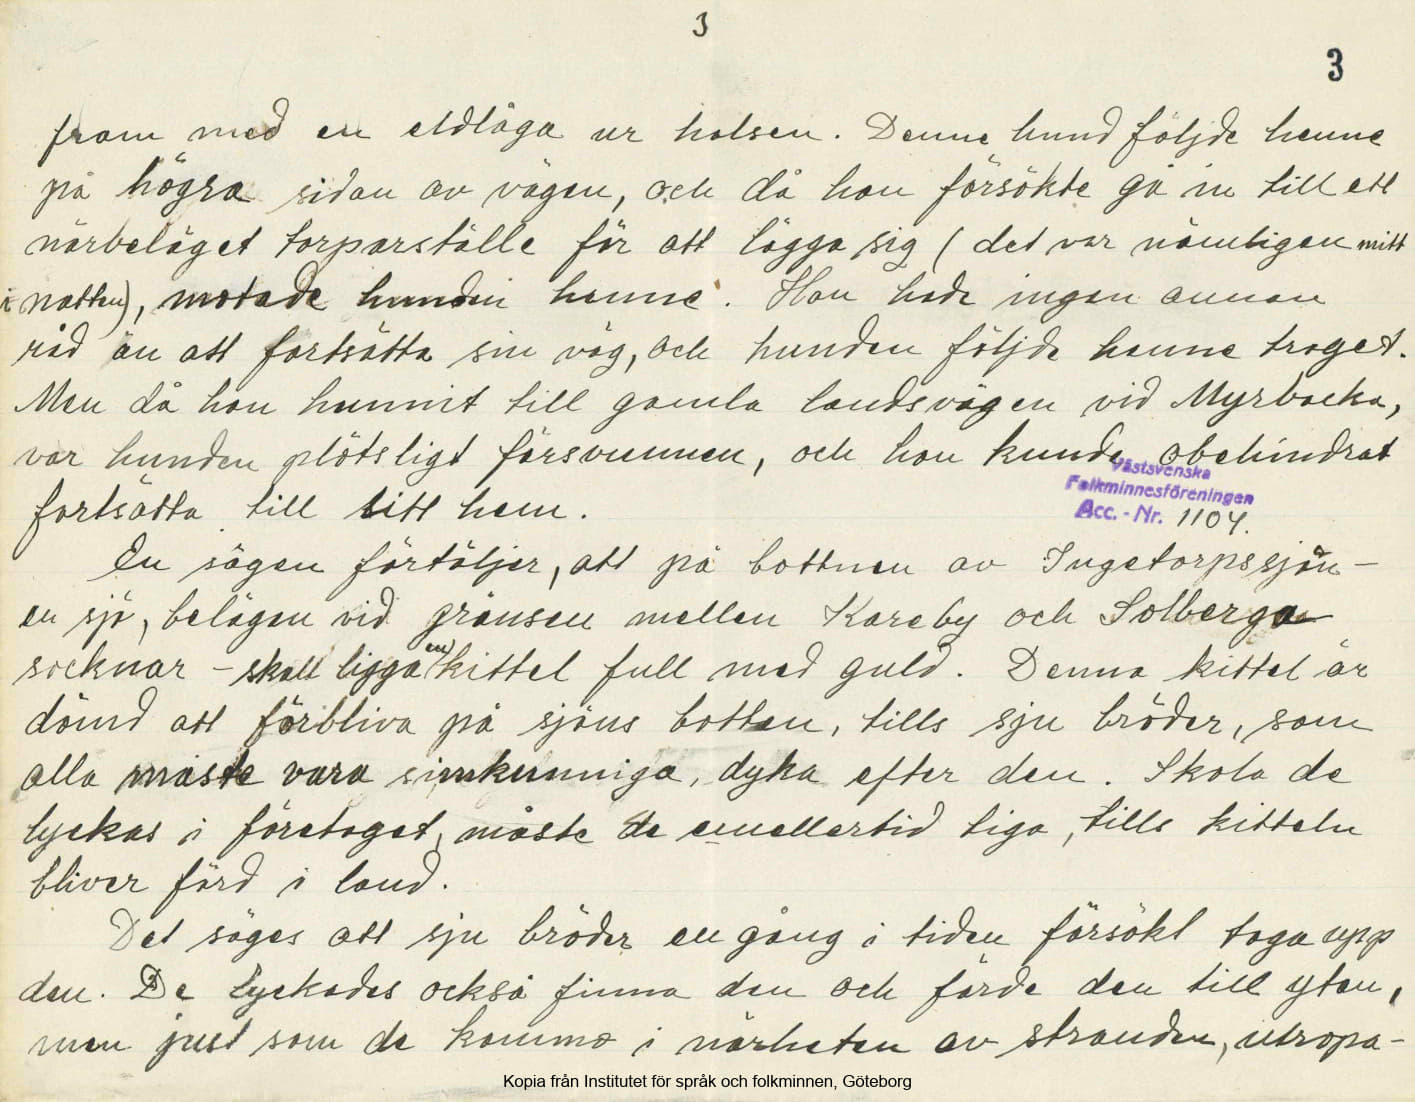 3
3
fram med en eldlåga ur halsen. Denne hund följde henne
på högra sidan av vägen, och då hon försökte gå in till ett
närbeläget torparställe för att lägga sig (det var nämligen mitt
i natten), motade hunden henne. Hon hade ingen annan
råd än att fortsätta sin väg, och hunden följde henne troget.
Men då hon hunnit till gamla landsvägen vid Myrbacka,
var hunden plötsligt försvunnen, och hon kunde obehindrat
fortsätta till sitt hem.
Västsvenska
Folkminnesföreningen
Acc. - Nr. 1104.
En sägen förtäljer, att på bottnen av Ingetorpssjön –
en sjö, belägen vid gränsen mellan Kareby och Solberga
socknar – skall ligga en kittel full med guld. Denna kittel är
dömd att förbliva på sjöns botten, tills sju bröder, som
alla måste vara simkunniga, dyka efter den. Skola de
lyckas i företaget, måste de emellertid tiga, tills kitteln
bliver förd i land.
Det säges att sju bröder en gång i tiden försökt taga upp
den. De lyckades också finna den och förde den till ytan,
men just som de kommo i närheten av stranden, utropa-
Kopia från Institutet för språk och folkminnen, Göteborg